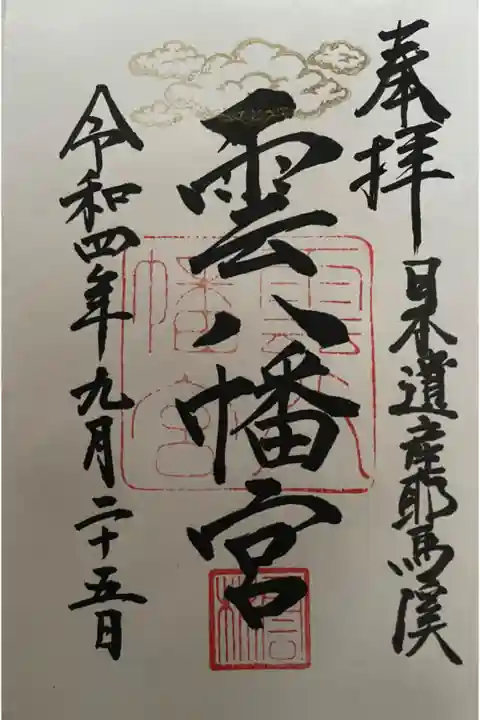 奉拝
日本遺産耶馬溪
雲八幡宮
雲八
幡宮
令和四年九月二十五日